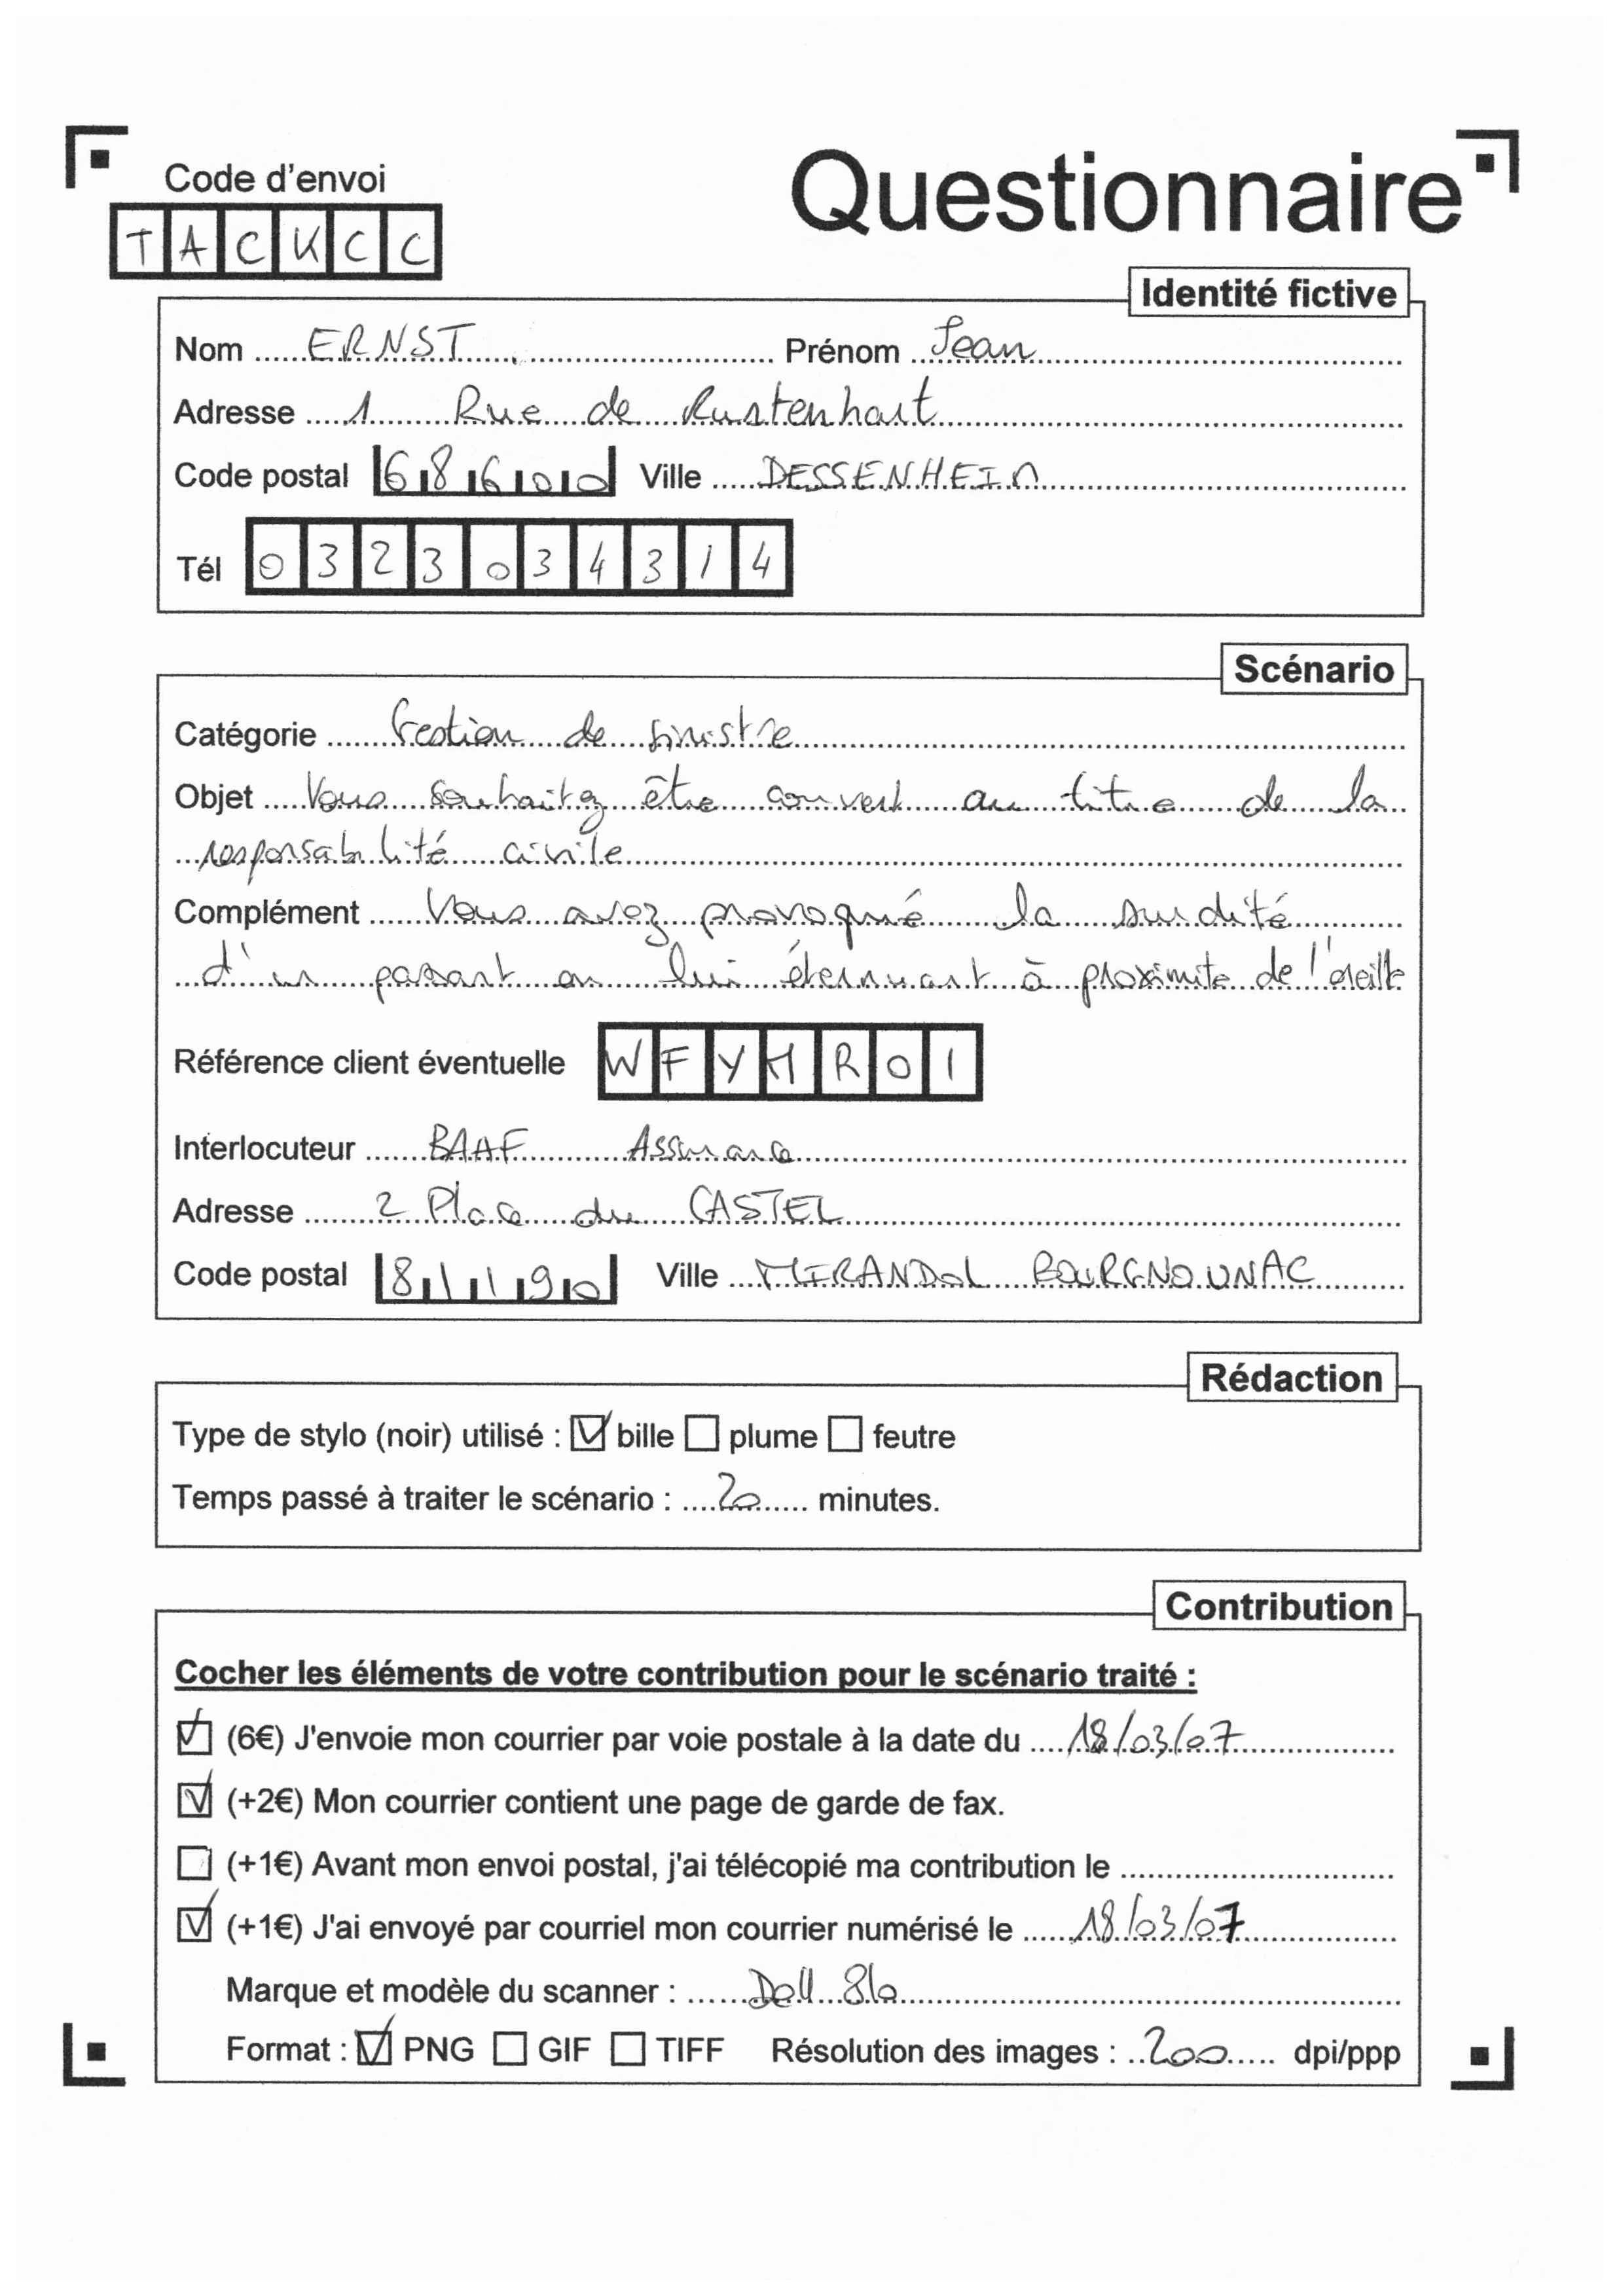 Code d'envoi
Questionnaire
TACKCC
Identité fictive
Nom ERNST Prénom Jean
Adresse 1 Rue de Rustenhart
Code postal 68600 Ville DESSENHEIM
Tél 0323034314
Scénario
Catégorie Gestion de sinistre
Objet Vous souhaitez être couvert au titre de la
responsabilité civile
Complément Vous avez provoqué la surdité
d'un passant en lui éternuant à proximité de l'oreille
Référence client éventuelle WFYHR01
Interlocuteur BAAF Assurance
Adresse 2 Place du CASTEL
Code postal 81190 Ville MIRANDOL BOURGNOUNAC
Rédaction
Type de stylo (noir) utilisé : bille plume feutre
Temps passé à traiter le scénario : 20 minutes.
Contribution
Cocher les éléments de votre contribution pour le scénario traité :
(6€) J'envoie mon courrier par voie postale à la date du 18/03/07
(+2€) Mon courrier contient une page de garde de fax.
(+1€) Avant mon envoi postal, j'ai télécopié ma contribution le
(+1€) J'ai envoyé par courriel mon courrier numérisé le 18/03/07
Marque et modèle du scanner : Dell 810
Format : PNG GIF TIFF Résolution des images : 200 dpi/ppp